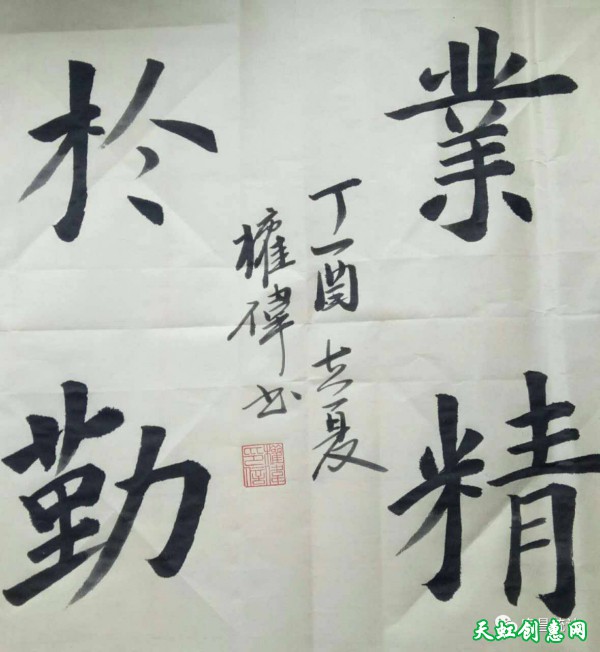 業精
於勤
丁酉立夏
權偉书
天虹创惠网